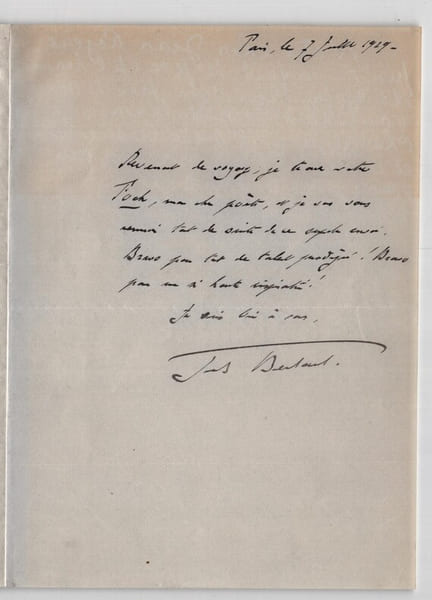 Paris, le 7 Juillet 1929 -
Revenant de voyage, je trouve votre
Foch, mon cher poète, et je vous
remercie tout de suite de ce
Bravo pour tant de talent prodigué ! Bravo
pour une si haute inspiration !
Je suis bien à vous,
Jules Bertaut.